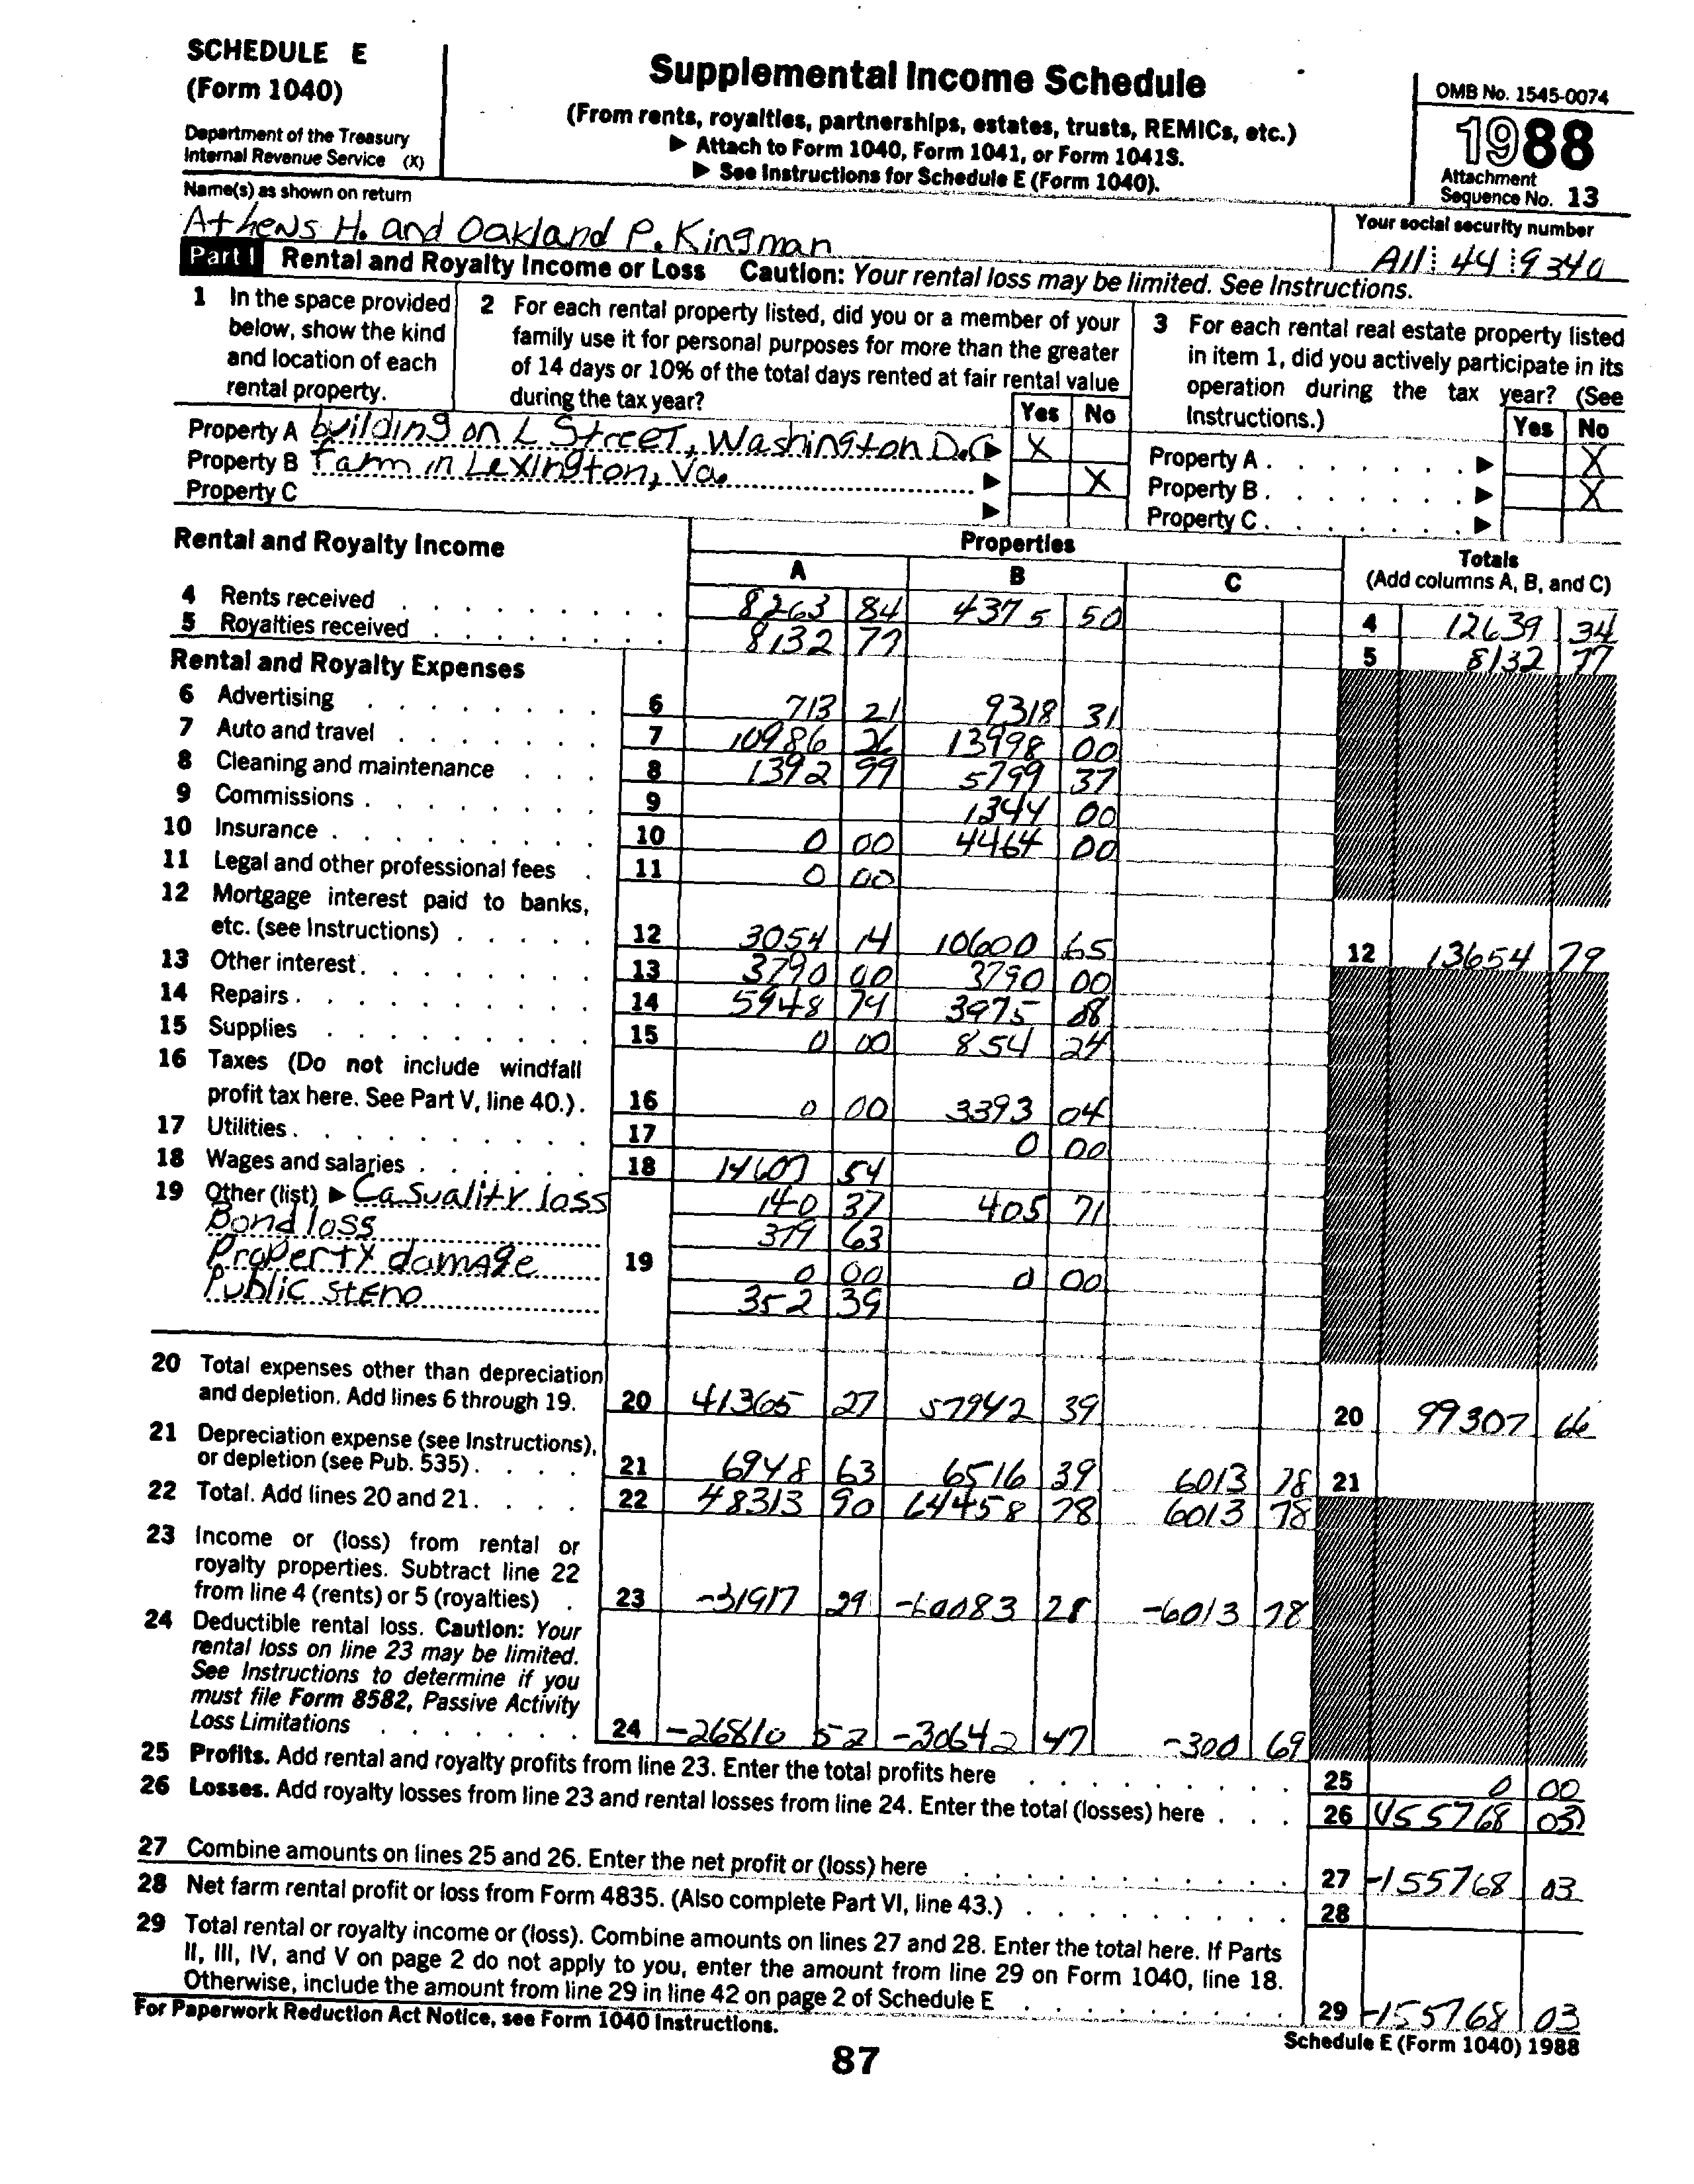 SCHEDULE E
(Form 1040)
Department of the Treasury
Internal Revenue Service (X)
Supplemental Income Schedule
(From rents, royalties, partnerships, estates, trusts, REMICs, etc.)
▶ Attach to Form 1040, Form 1041, or Form 1041S.
▶ See Instructions for Schedule E (Form 1040).
OMB No. 1545-0074
1988
Attachment
Sequence No. 13
Name(s) as shown on return
Athens H. and Oakland P. Kingman
Your social security number
A11 44 9340
Part I Rental and Royalty Income or Loss Caution: Your rental loss may be limited. See Instructions.
1 In the space provided
below, show the kind
and location of each
rental property.
2 For each rental property listed, did you or a member of your
family use it for personal purposes for more than the greater
of 14 days or 10% of the total days rented at fair rental value
during the tax year?
Yes No
3 For each rental real estate property listed
in item 1, did you actively participate in its
operation during the tax year? (See
Instructions.)
Yes No
Property A building on L Street, Washington D.C ▶ X
Property B farm in Lexington, Va. ▶ X
Property C ▶
Property A . . . . . . . ▶ X
Property B . . . . . . . ▶ X
Property C . . . . . . . ▶
Rental and Royalty Income
Properties
A B C
Totals
(Add columns A, B, and C)
4 Rents received 8263 84 4375 50 4 12639 34
5 Royalties received 8132 77 5 8132 77
Rental and Royalty Expenses
6 Advertising 6 713 21 9318 31
7 Auto and travel 7 10986 26 13998 00
8 Cleaning and maintenance 8 1392 99 5799 37
9 Commissions 9 1344 00
10 Insurance 10 0 00 4464 00
11 Legal and other professional fees 11 0 00
12 Mortgage interest paid to banks,
etc. (see Instructions) 12 3054 14 10600 65 12 13654 79
13 Other interest 13 3790 00 3790 00
14 Repairs 14 5948 74 3975 08
15 Supplies 15 0 00 854 24
16 Taxes (Do not include windfall
profit tax here. See Part V, line 40.) 16 0 00 3393 04
17 Utilities 17 0 00
18 Wages and salaries 18 14607 54
19 Other (list) ▶ Casuality loss 140 37 405 71
Bond loss 379 63
Property damage 19 0 00 0 00
Public steno 352 39
20 Total expenses other than depreciation
and depletion. Add lines 6 through 19. 20 41365 27 57942 39 20 99307 66
21 Depreciation expense (see Instructions),
or depletion (see Pub. 535) 21 6948 63 6516 39 6013 78 21
22 Total. Add lines 20 and 21 22 48313 90 64458 78 6013 78
23 Income or (loss) from rental or
royalty properties. Subtract line 22
from line 4 (rents) or 5 (royalties) 23 -31917 29 -60083 28 -6013 78
24 Deductible rental loss. Caution: Your
rental loss on line 23 may be limited.
See Instructions to determine if you
must file Form 8582, Passive Activity
Loss Limitations 24 -26810 52 -30642 47 -300 69
25 Profits. Add rental and royalty profits from line 23. Enter the total profits here 25 0 00
26 Losses. Add royalty losses from line 23 and rental losses from line 24. Enter the total (losses) here 26 (155768 03)
27 Combine amounts on lines 25 and 26. Enter the net profit or (loss) here 27 -155768 03
28 Net farm rental profit or loss from Form 4835. (Also complete Part VI, line 43.) 28
29 Total rental or royalty income or (loss). Combine amounts on lines 27 and 28. Enter the total here. If Parts
II, III, IV, and V on page 2 do not apply to you, enter the amount from line 29 on Form 1040, line 18.
Otherwise, include the amount from line 29 in line 42 on page 2 of Schedule E 29 -155768 03
For Paperwork Reduction Act Notice, see Form 1040 Instructions.
Schedule E (Form 1040) 1988
87